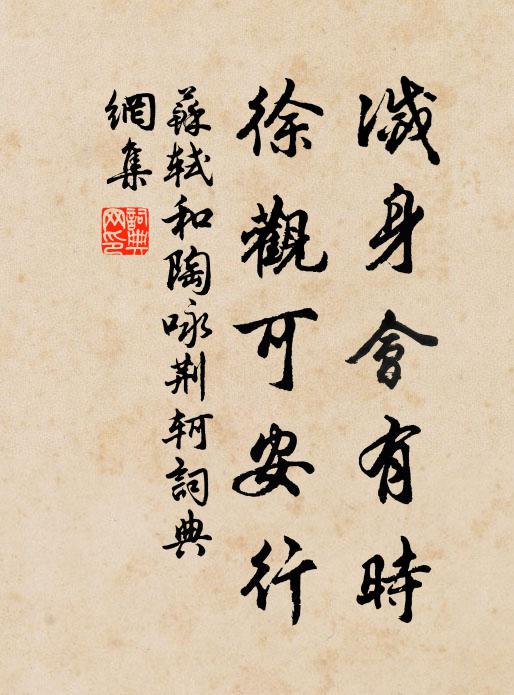 滅身會有時
徐觀可安行
蘇軾和陶咏荆軻詞典
網集
詞典
网印